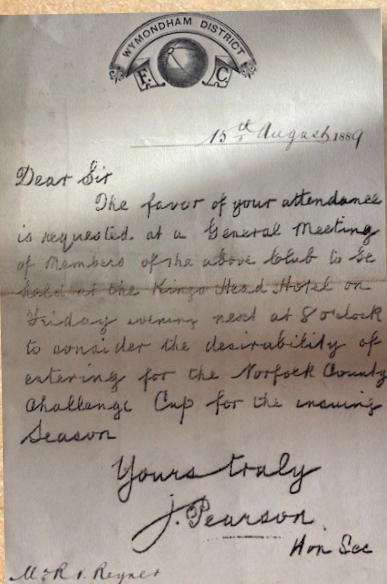 WYMONDHAM DISTRICT
F. C
15th August 1889
Dear Sir
The favor of your attendance
is requested at a General Meeting
of Members of the above Club to be
held at the Kings Head Hotel on
Friday evening next at 8 o'clock
to consider the desirability of
entering for the Norfolk County
Challenge Cup for the ensuing
Season
Yours truly
J. Pearson
Hon Sec